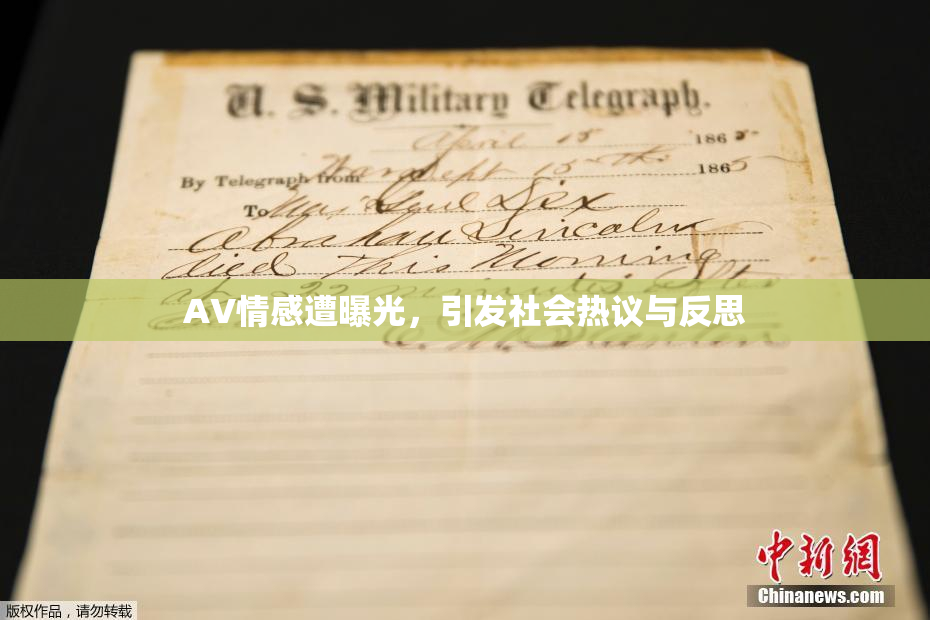 U. S. Military Telegraph.
April 15 1865
By Telegraph from War Dept 15th 1865
To Maj Genl Dix
Abraham Lincoln
died this Morning
at 22 minutes after
AV情感遭曝光，引发社会热议与反思
E. M. Stanton
中新网
Chinanews.com
版权作品，请勿转载